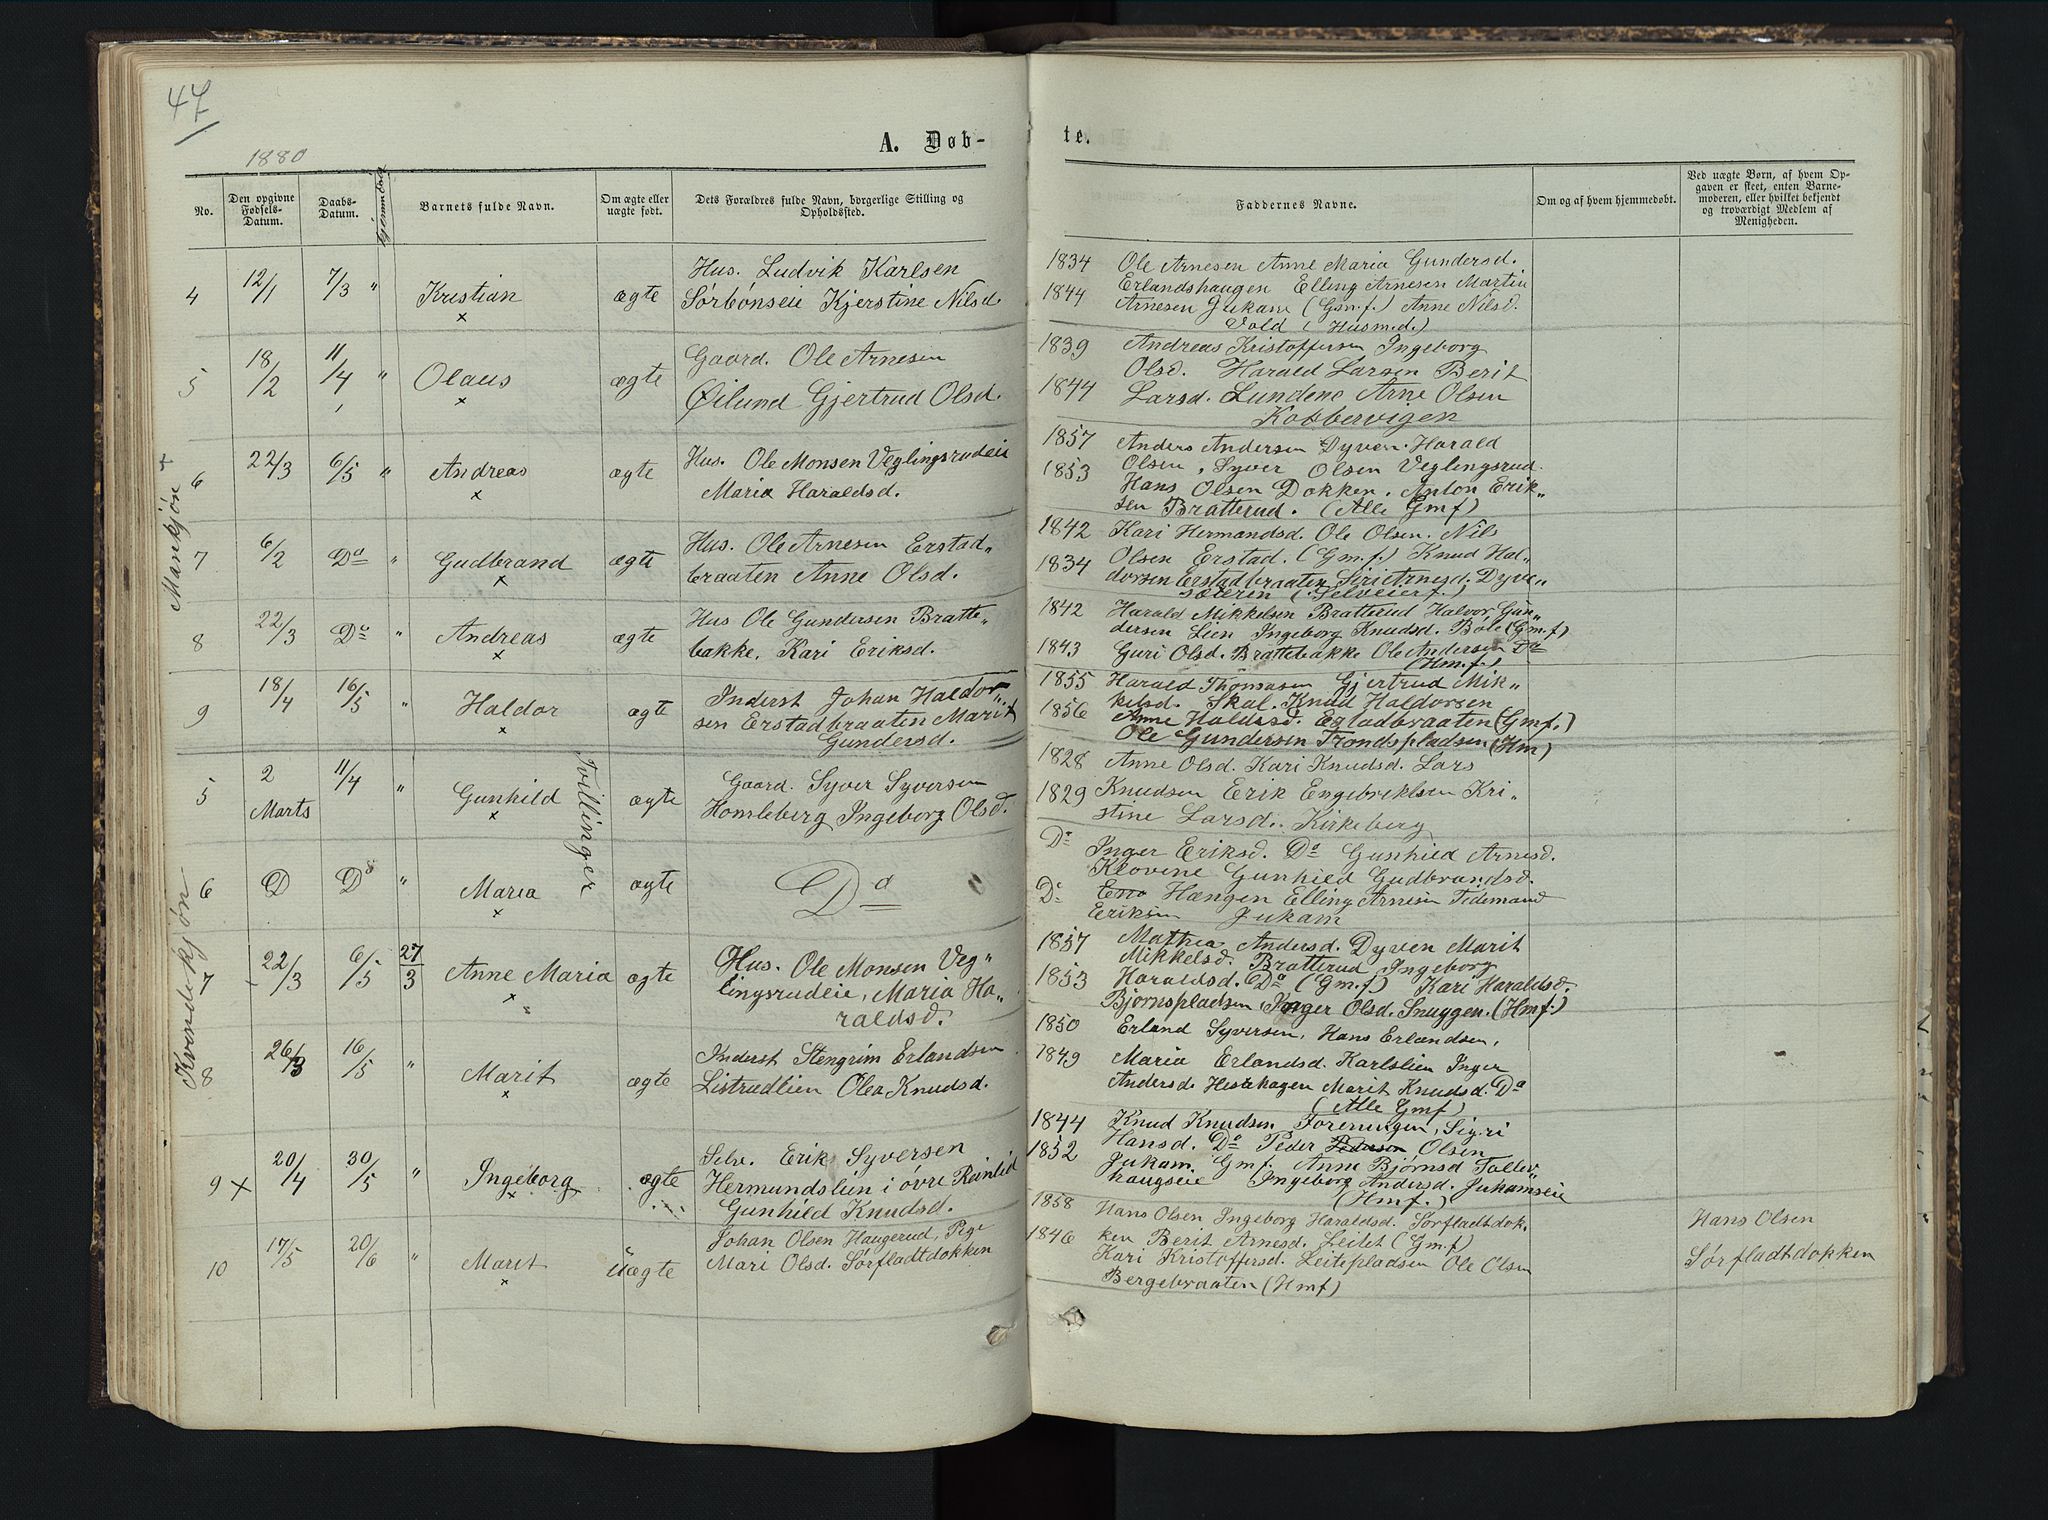 47
A. Døb-
te.
1880
No.
Den opgivne Fødsels-Datum.
Daabs-Datum.
Hjemmedøbt
Barnets fulde Navn.
Om ægte eller uægte født.
Dets Forældres fulde Navn, borgerlige Stilling og Opholdssted.
Faddernes Navne.
Om og af hvem hjemmedøbt.
Ved uægte Børn, af hvem Opgaven er skeet, enten Barnemoderen, eller hvilket bekjendt og troværdigt Medlem af Menigheden.
Mankjøn +
4 12/1 7/3 " Kristian ægte
Hus. Ludvik Karlsen
Sørbønseie Kjerstine Nilsd.
1834 Ole Arnesen Anne Maria Gundersd.
1844 Erlandshaugen Elling Arnesen Martin
Arnesen Jukam (Gm.f.) Anne Nilsd.
Vold (Husm.d.)
5 18/2 11/4 " Olaus ægte
Gaard. Ole Arnesen
Øilund Gjertrud Olsd.
1839 Andreas Kristoffersen Ingeborg
Olsd. Harald Larsen Berit
1844 Larsd. Lundene Arne Olsen
Kobbervigen
6 22/3 6/5 " Andreas ægte
Hus. Ole Monsen Veglingsrudeie
Maria Haraldsd.
1857 Anders Andersen Dyven. Harald
1853 Olsen, Syver Olsen Veglingsrud.
Hans Olsen Dokken. Anton Erik„
sen Bratterud. (Alle Gmf)
7 6/2 Do " Gudbrand ægte
Hus. Ole Arnesen Erstad„
braaten Anne Olsd.
1842 Kari Hermandsd. Ole Olsen. Nils
1834 Olsen Erstad. (Gm.f.) Knud Hal„
dorsen Erstadbraaten Siri Arnesd. Dyve„
sæteren (Selveierf.)
8 22/3 Do " Andreas ægte
Hus Ole Gundersen Bratte„
bakke, Kari Eriksd.
1842 Harald Mikkelsen Bratterud Halvor Gun„
dersen Lien Ingeborg Knudsd. Bøle (Gm.f)
1843 Guri Olsd. Brattebakke Ole Andersen Do
(Hm.f.)
9 18/4 16/5 " Haldor ægte
Inderst Johan Haldor„
sen Erstadbraaten Marit
Gundersd.
1855 Harald Thomasen Gjertrud Mik„
kelsd. Skal. Knud Haldorsen
1856 Anne Haldsd. Egtadbraaten (Gmf.)
Ole Gundersen Trondspladsen (Hm)
Kvindekjøn
5 2 Marts 11/4 " Gunhild ægte
Tvillinger
Gaard. Syver Syversen
Homleberg Ingeborg Olsd.
1828 Anne Olsd. Kari Knudsd. Lars
1829 Knudsen Erik Engebriktsen Kri„
stine Larsd. Kirkeberg
6 D Do " Maria ægte
Do
Do Inger Eriksd. Do Gunhild Arnesd.
Klovine Gunhild Gudbrandsd.
Do Hængen Elling Arnesen Tidemand
Eriksen Jukam
7 22/3 6/5 27/3 Anne Maria ægte
Hus. Ole Monsen Veg„
lingsrudeie, Maria Ha„
raldsd.
1857 Mathea Andersd. Dyven Marit
Mikkelsd. Bratterud Ingeborg
1853 Haraldsd. Do (Gm.f) Kari Haraldsd.
Bjørnspladsen Inger Olsd. Snuggen. (Hmf.)
8 26/3 16/5 " Marit ægte
Inderst Stengrim Erlandsen
Listrudlien Olea Knudsd.
1850 Erland Syversen, Hans Erlandsen,
1849 Maria Erlandsd. Karlslien Inger
Andersd. Hestehagen Marit Knudsd. Do
(Alle Gmf)
9 x 20/4 30/5 " Ingeborg ægte
Selv. Erik Syversen
Hermundslien i øvre Reinlid
Gunhild Knudsd.
1844 Knud Knudsen Foreningen, Sigri
1852 Hansd. Do Peder Pedersen Olsen
Jukam Gmf. Anne Bjørnsd Tollev„
haugseie Ingeborg Andersd. Jukamseie
(Hmf.)
10 17/5 20/6 " Marit Uægte
Johan Olsen Haugerud, Pige
Mari Olsd. Sørfladtdokken
1858 Hans Olsen Ingeborg Haraldsd. Sørfladtdok„
1846 ken Berit Arnesd. Leitet (Gm.f)
Kari Kristoffersd. Leitepladsen Ole Olsen
Bergebraaten (Hmf)
Hans Olsen
Sørfladtdokken